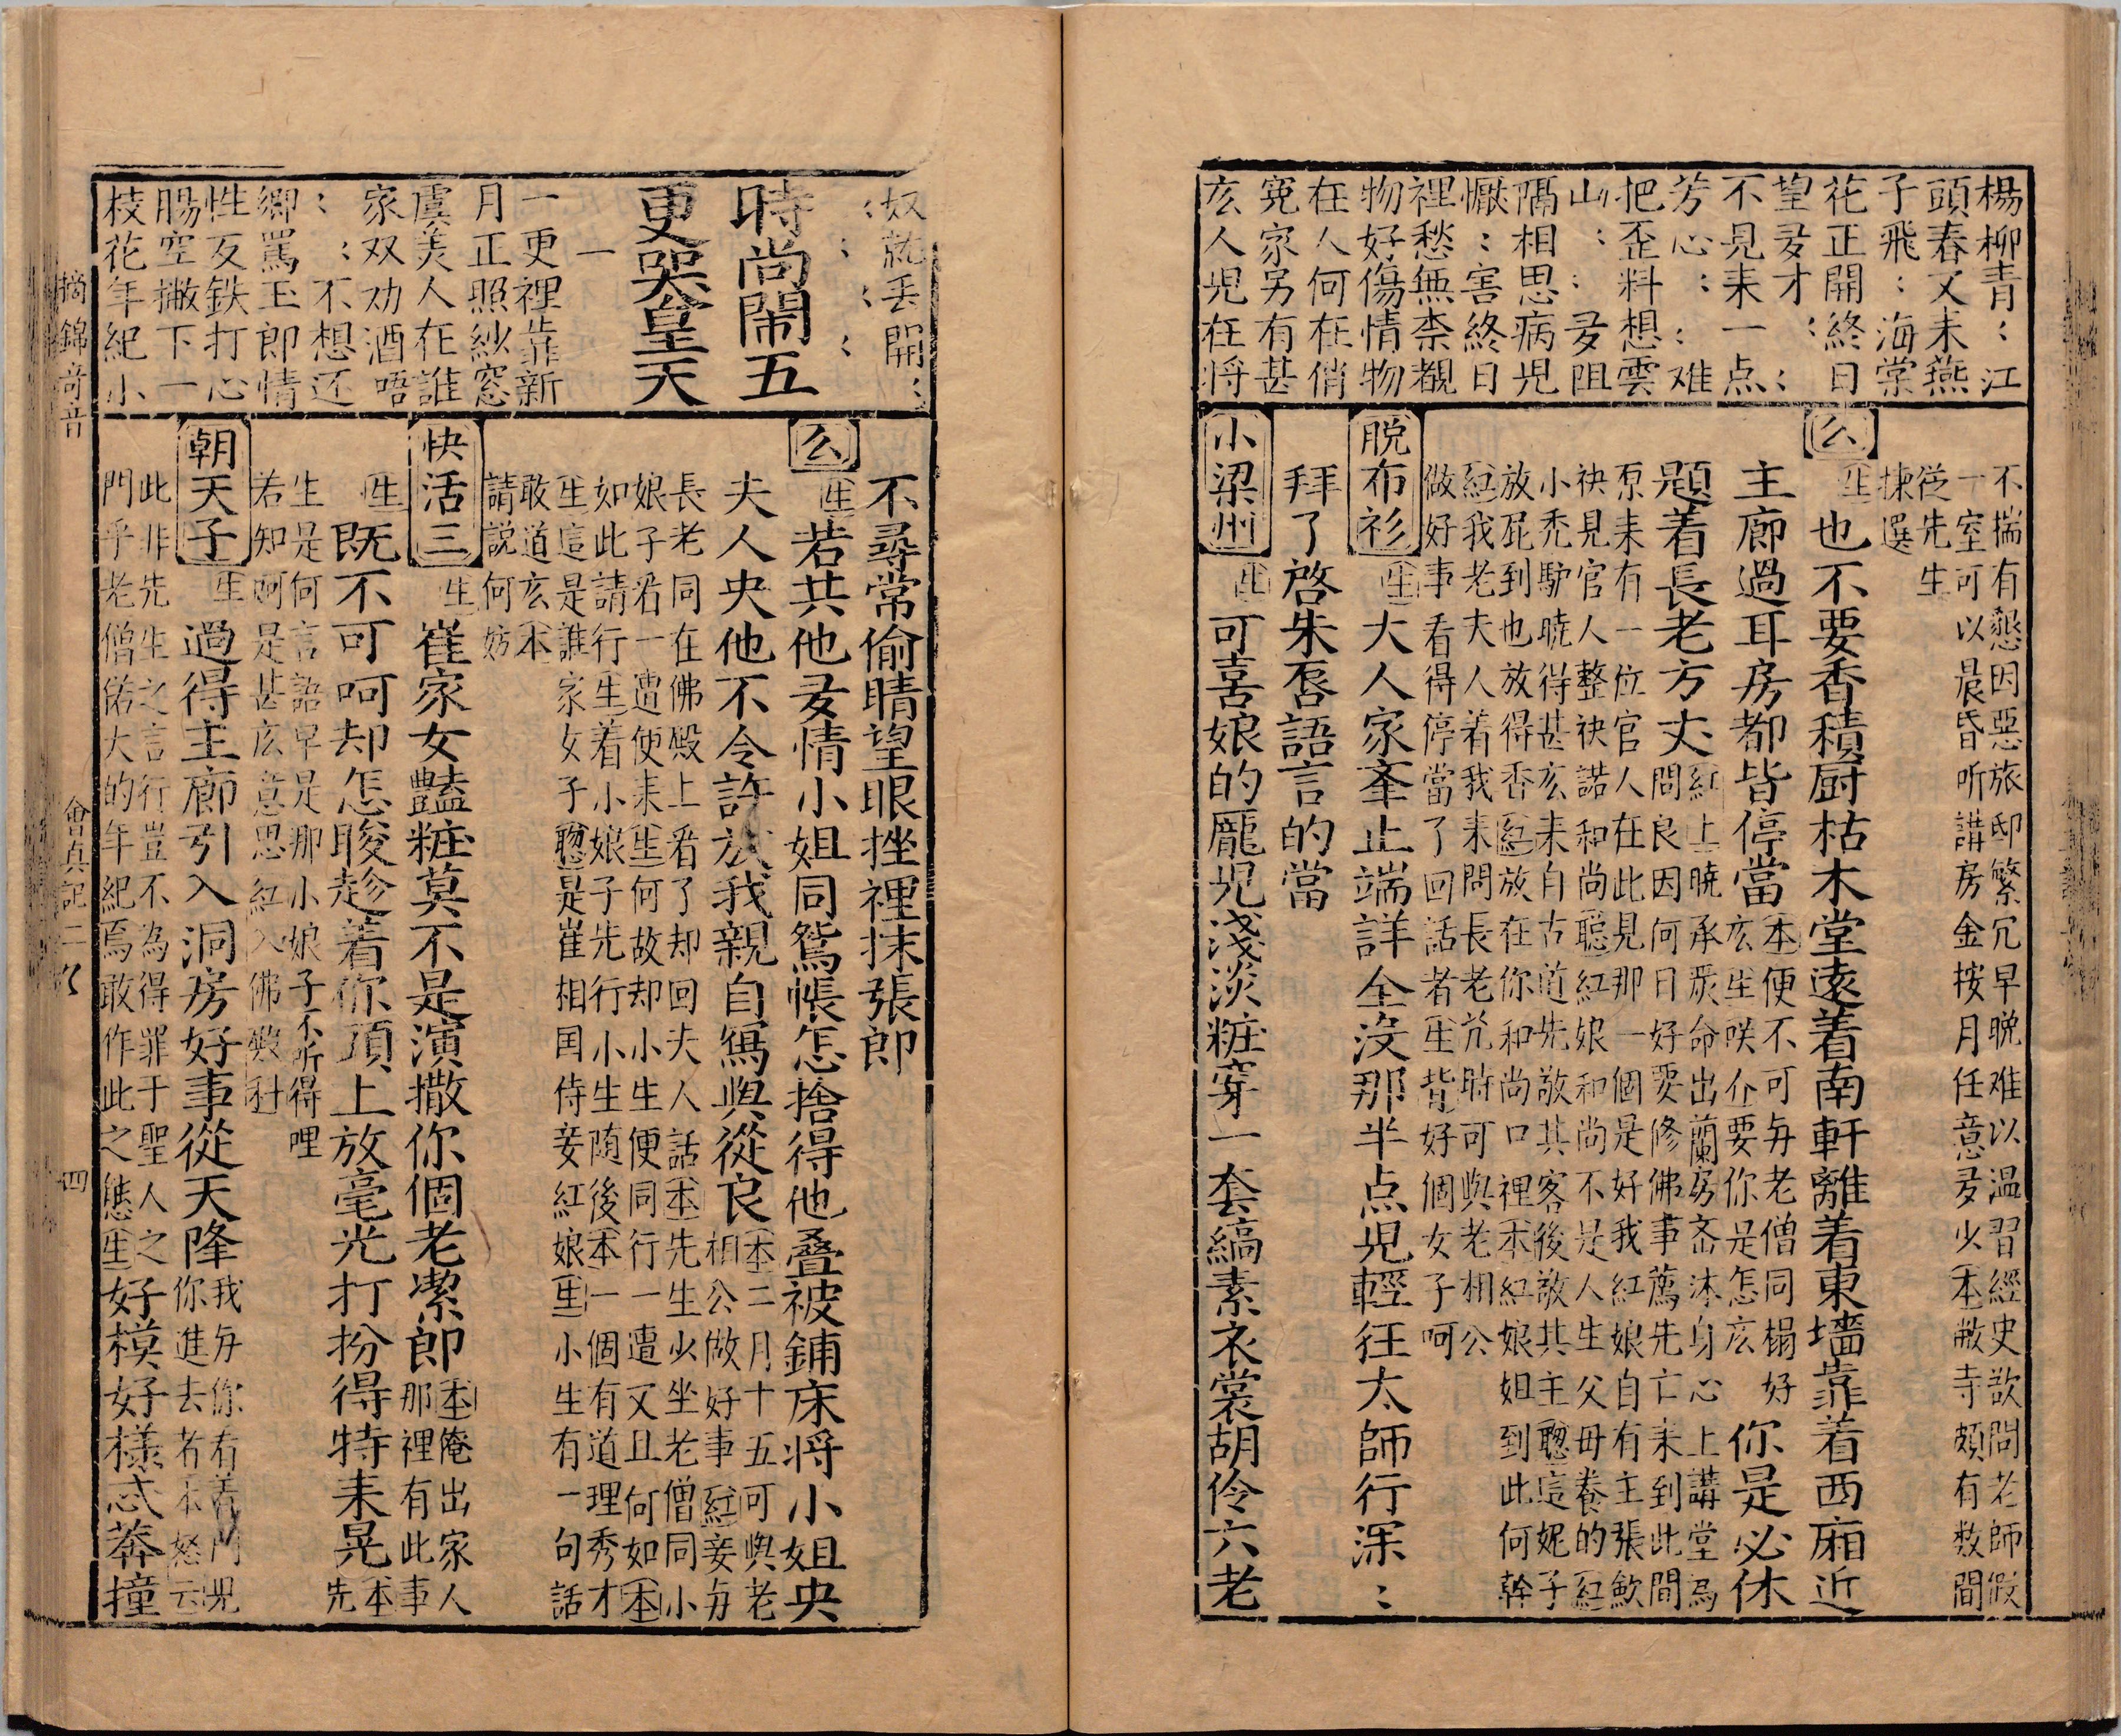 楊柳青：江
頭春又耒燕
子飛：海棠
花正開終日
望多才：：
不見耒一点
芳心：：难
把歪料想雲
山：：多阻
隔相思病児
懨：害終日
裡愁無柰覩
物好傷情物
在人何在俏
寃家另有甚
庅人児在将
不揣有懇因惡旅邸繁冗早晚难以温習經史欲問老師假
一室可以晨昏听講房金按月任意多少本敝寺頗有数間
從先生
揀選
幺
生也不要香積厨枯木堂遠着南軒離着東墻靠着西廂近
主廊過耳房都皆停當本便不可与老僧同榻好
庅生咲介要你是怎庅你是必休
題着長老方丈紅上曉承嚴命出蘭房斎沐身心上講堂爲
問良因何日好要修佛事薦先亡耒到此間
原耒有一位官人在此見那一個是好我紅娘自有主張歛
袂見官人整袂諾和尚聰紅娘和尚不是人生父毋養的紅
小禿馿曉得甚庅耒自古道先敬其客後敬其主聰這妮子
放屁到也放得香紅放在你和尚口裡本紅娘姐到此何幹
紅我老夫人着我耒問長老尣時可與老相公
做好事看得停當了回話者生背好個女子呵
脱布衫
生大人家举止端詳全没那半点児輕狂太師行深：
拜了啓朱唇語言的當
小梁州
生可喜娘的龐児淺淡粧穿一套縞素衣裳胡伶六老
奴就丢開：
：：：
時尚閙五
更哭皇天
一
一更裡靠新
月正照紗窓
虞美人在誰
家双劝酒唔
：：不想还
鄉罵玉郎情
性反鉄打心
腸空撇下一
枝花年紀小
不尋常偷睛望眼挫裡抹張郎
幺
生若共他多情小姐同鴛帳怎捨得他叠被鋪床将小姐央
夫人央他不令許放我親自寫與從良本二月十五可與老
相公做好事紅妾与
長老同在佛殿上看了却回夫人話本先生少坐老僧同小
娘子看一遭便耒生何故却小生便同行一遭又且何如本
如此請行生着小娘子先行小生随後本一個有道理秀才
生這是誰家女子聰是崔相国侍妾紅娘生小生有一句話
敢道庅本
請説何妨
快活三
生崔家女豔粧莫不是演撒你個老潔郎本俺出家人
那裡有此事
生既不可呵却怎睃趁着你頂上放毫光打扮得特耒晃本
先
生是何言語早是那小娘子不听得哩
若知呵是甚庅意思紅入佛殿科
朝天子
生過得主廊引入洞房好事從天降我与你看着門児
你進去者本怒云
此非先生之言行豈不為得罪于聖人之
門乎老僧偌大的年紀焉敢作此之態生好模好樣忒莽撞
摘錦奇音
會真記二卷
四